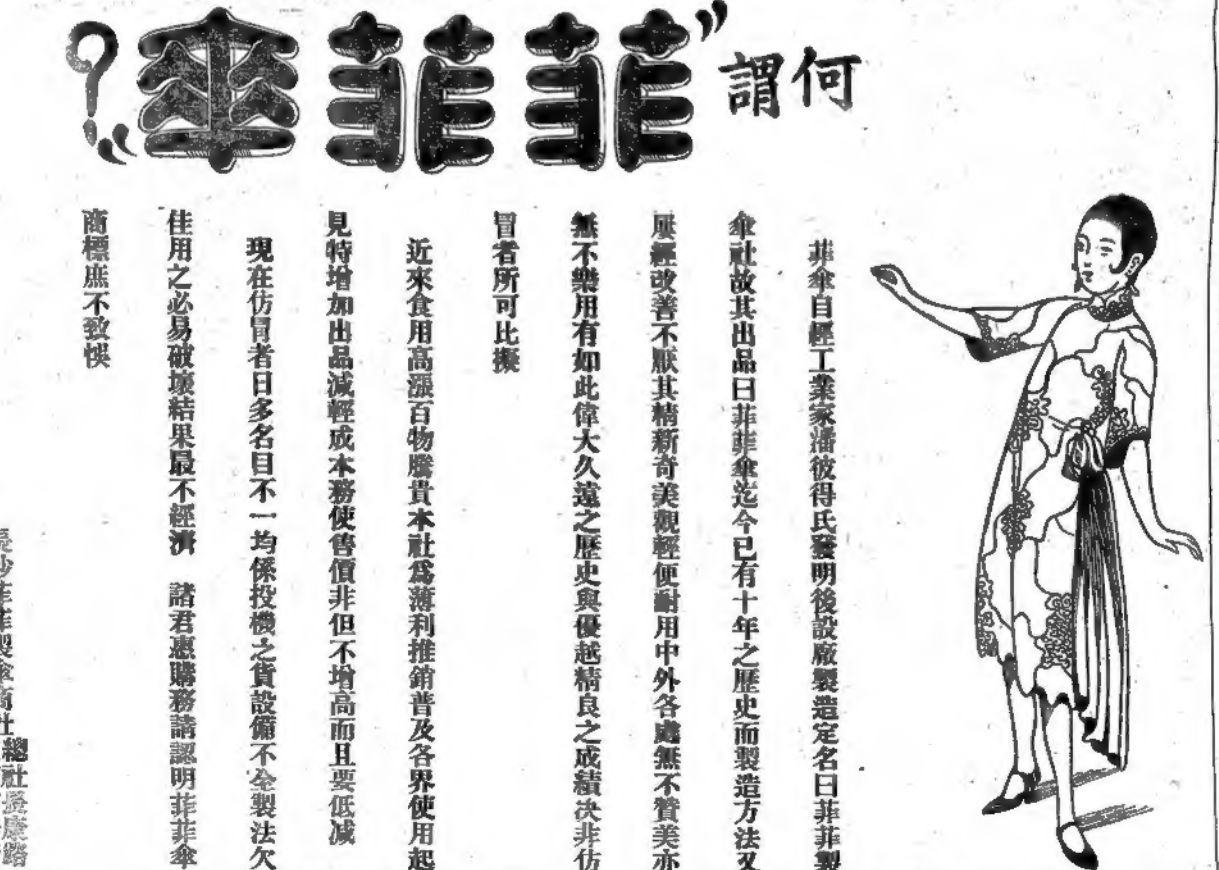 何謂"菲菲傘"?
菲傘自輕工業家潘彼得氏發明後設廠製造定名曰菲菲製
傘社故其出品曰菲菲傘迄今已有十年之歷史而製造方法又
屢經改善不厭其精新奇美觀輕便耐用中外各處無不贊美亦
無不樂用有如此偉大久遠之歷史與優越精良之成績決非仿
冒者所可比擬
近來食用高漲百物騰貴本社爲薄利推銷普及各界使用起
見特增加出品減輕成本務使售價非但不增高而且要低減
現在仿冒者日多名目不一均係投機之貨設備不全製法欠
佳用之必易破壞結果最不經濟　諸君惠購務請認明菲菲傘
商標庶不致悞
長沙菲菲製傘商社總社長康路